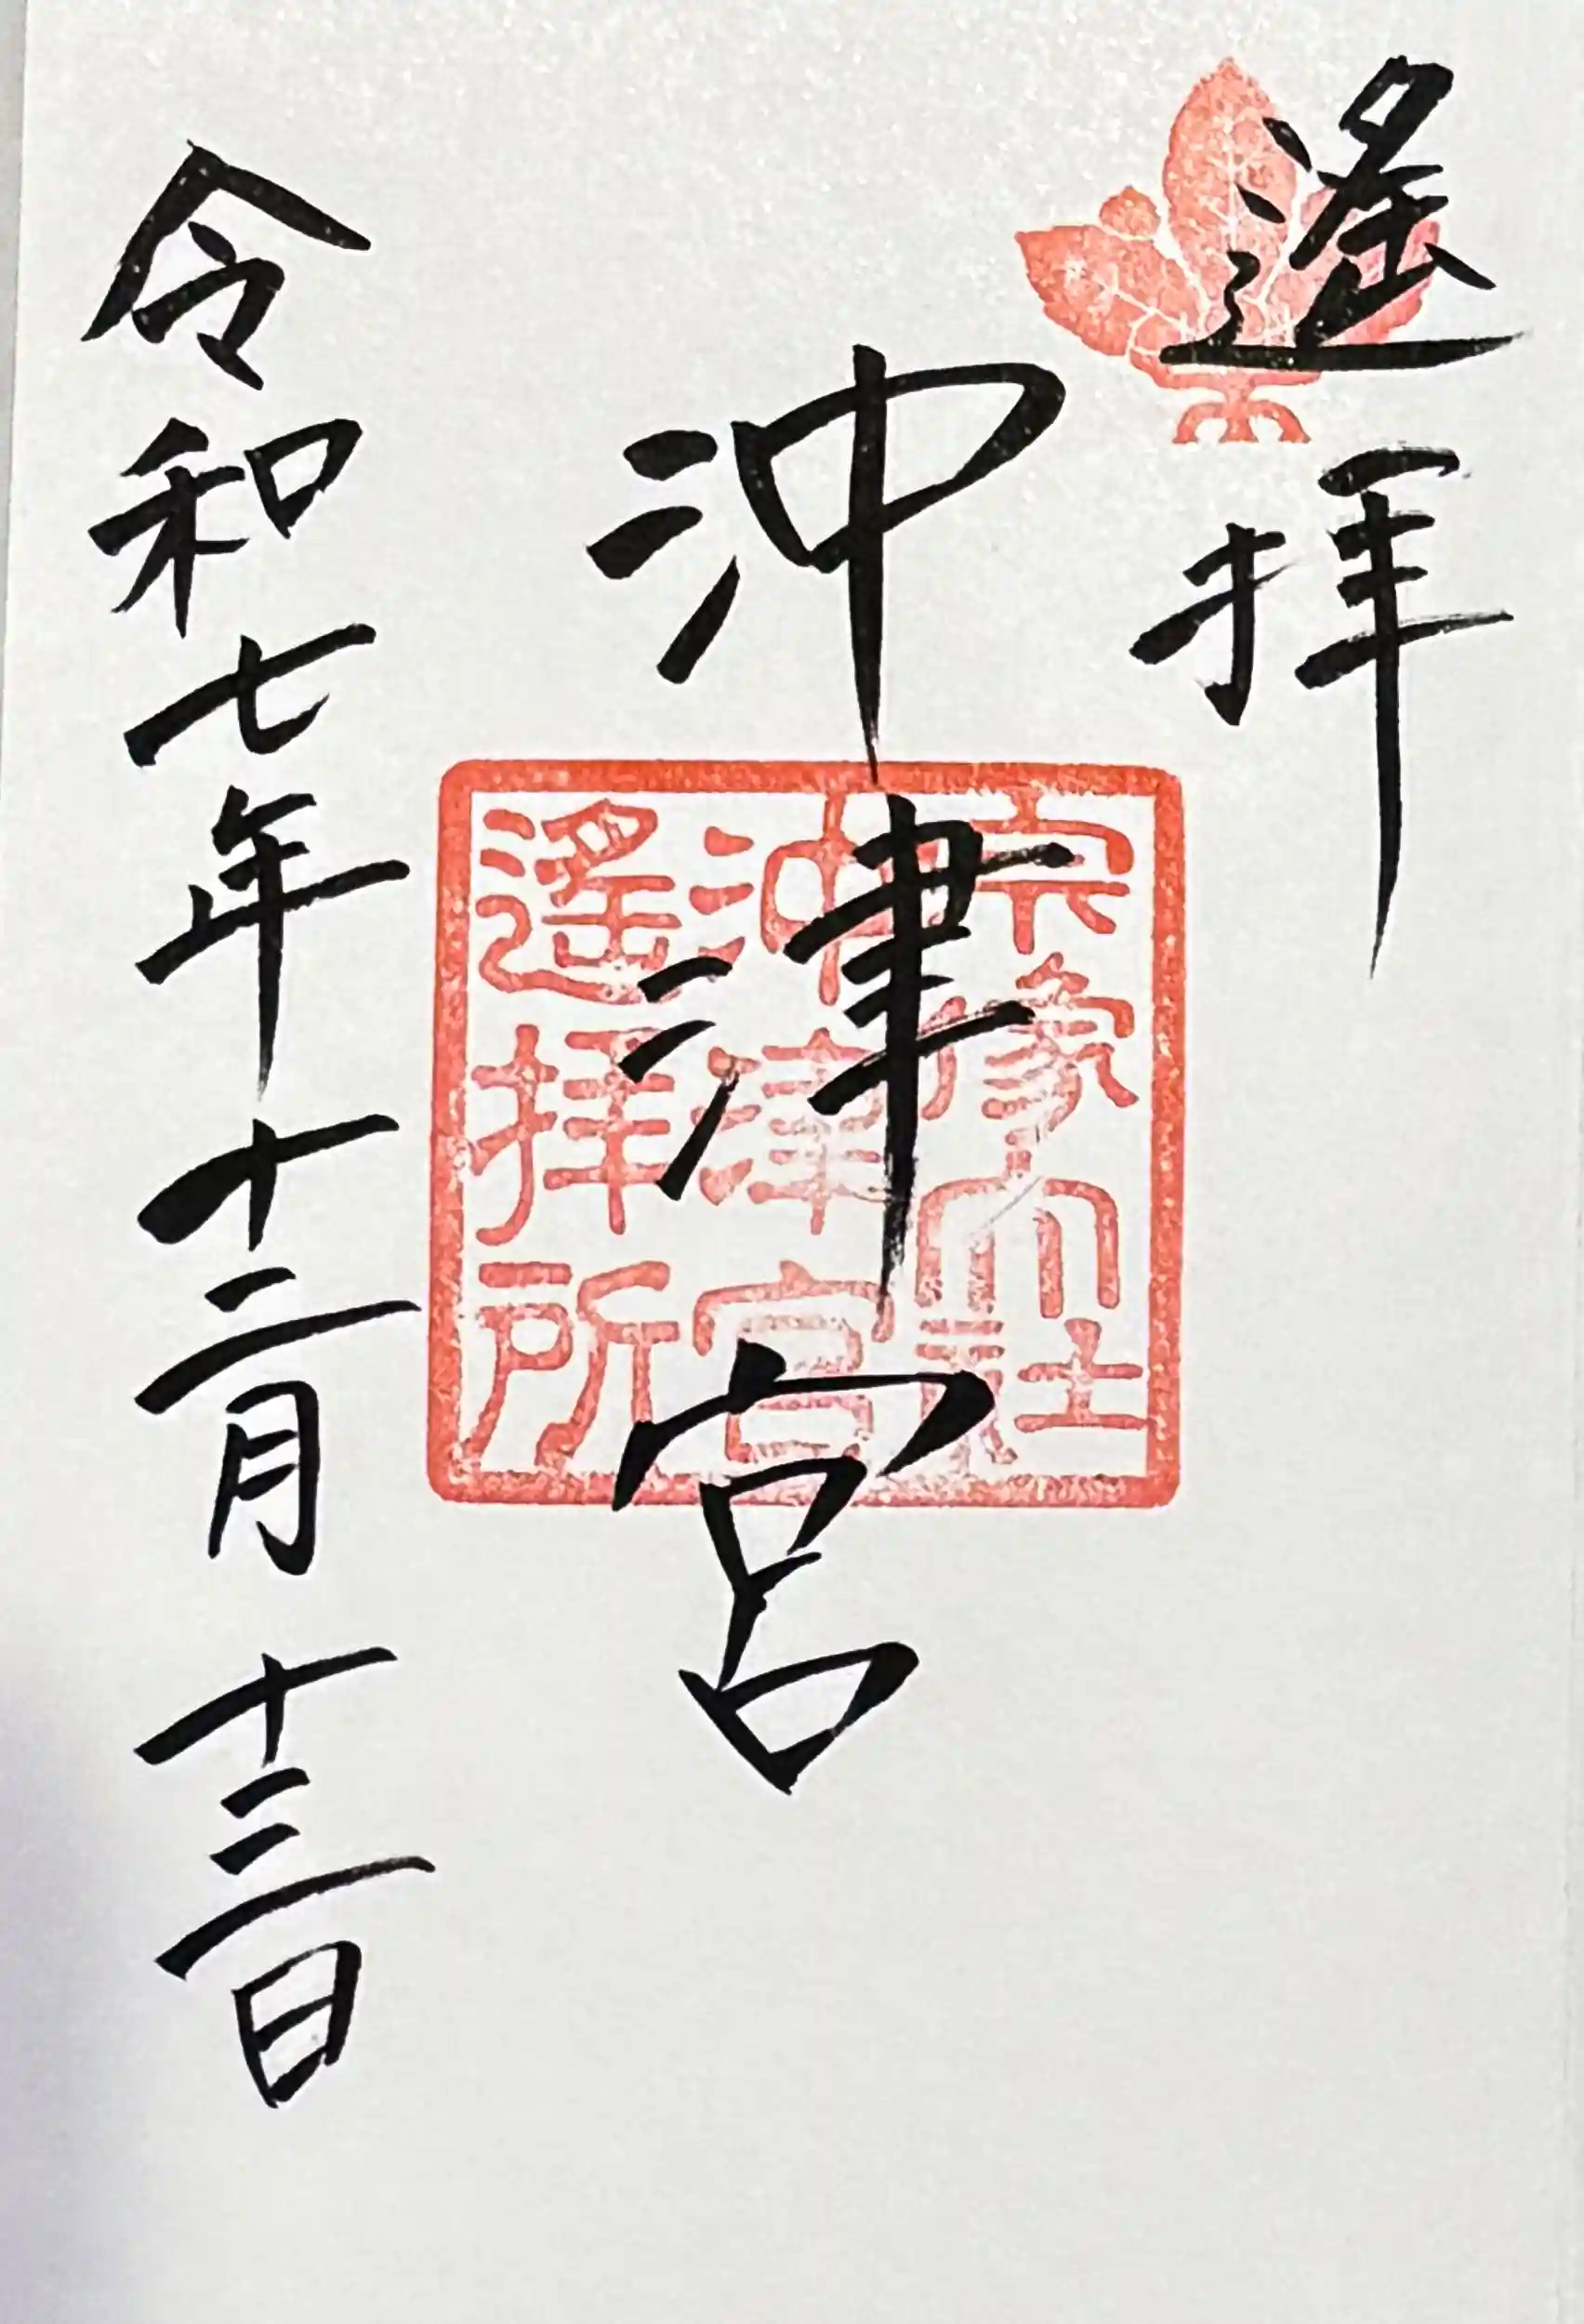 遙拝
沖津宮
宗像大社
沖津宮
遙拝所
令和七年十二月十三日